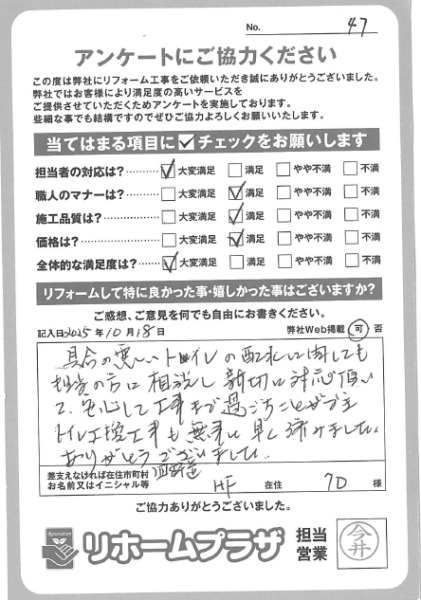 No. 47
アンケートにご協力ください
この度は弊社にリフォーム工事をご依頼いただき誠にありがとうございました。
弊社ではお客様により満足度の高いサービスを
ご提供させていただくためアンケートを実施しております。
些細な事でも結構ですのでぜひご協力よろしくお願いいたします。
当てはまる項目に✓チェックをお願いします
担当者の対応は?……… ☑大変満足 □満足 □やや不満 □不満
職人のマナーは?……… □大変満足 ☑満足 □やや不満 □不満
施工品質は?………… □大変満足 ☑満足 □やや不満 □不満
価格は?……………… □大変満足 ☑満足 □やや不満 □不満
全体的な満足度は?…… ☑大変満足 □満足 □やや不満 □不満
リフォームして特に良かった事・嬉しかった事はございますか?
ご感想、ご意見を何でも自由にお書きください。
記入日2025年10月18日 弊社Web掲載 可 否
具合の悪いトイレの配水に関しても
担当の方に相談し親切に対応頂い
て、安心して工事まで過ごすことができ
トイレ工事も無事に早く済みました。
ありがとうございました。
差支えなければ在住市町村
お名前又はイニシャル等 HF 在住 70 様
ご協力ありがとうございました。
リホームプラザ 担当営業 今井